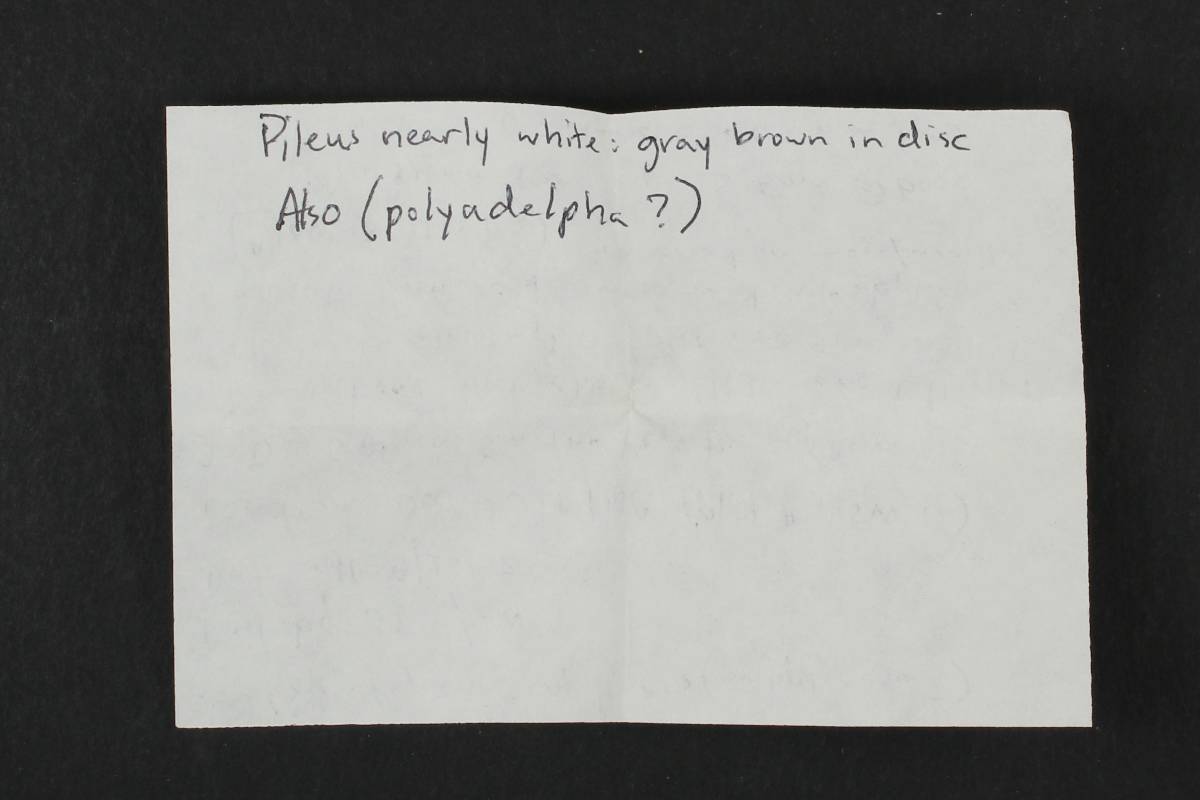 Pileus nearly white: gray brown in disc
Also (polyadelpha ?)